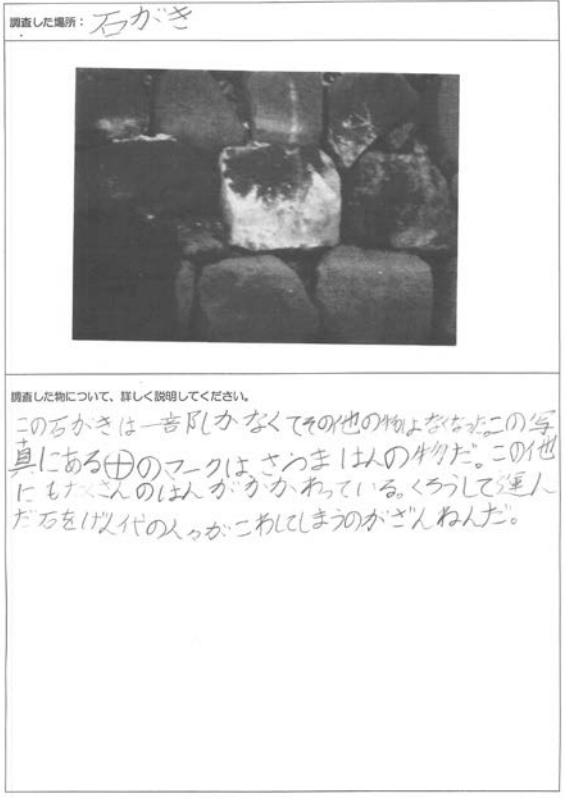 調査した場所： 石がき
調査した物について、詳しく説明してください。
この石がきは一部しかなくてその他の物はなくなった。この写
真にある㊉のマークは、さつまはんの物だ。この他
にもたくさんのはんがかかわっている。くろうして運ん
だ石をげん代の人々がこわしてしまうのがざんねんだ。